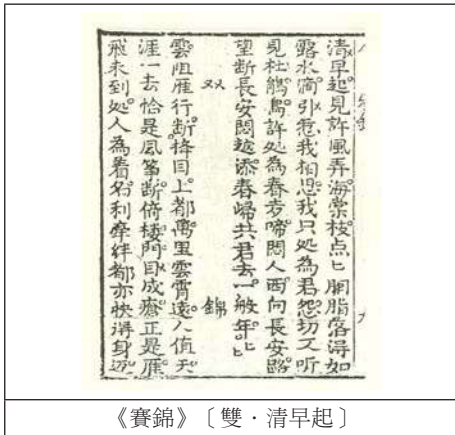 清早起見許風弄海棠枝点匕胭脂落得如
露水滴引惹我相思我只処為君怨切又听
見杜鵑鳥許処為春去啼悶人西向長安路
望断長安悶越添春歸共君去一般年匕
双 錦
雲阻雁行断目上都萬里雲霄遠人值天
涯一去恰是風箏断倚楼門目成瘡正是雁
飛未到処人為着名利牽絆都亦得身返
《賽錦》〔雙·清早起〕